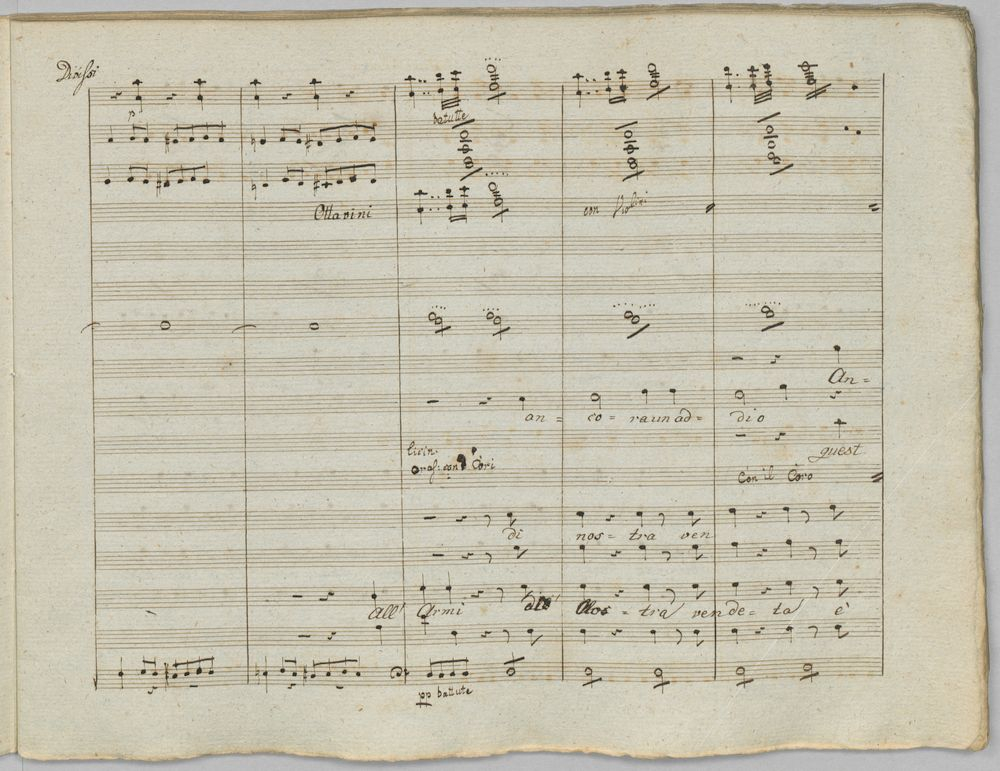 Divisi
p
battute
Ottavini
con Violini
An=
an = co = ra un ad = dio
quest
licin.
Oras: con Cori
Con il Coro
di nos = tra ven
all' Armi di Nos = tra vende = ta è
pp battute